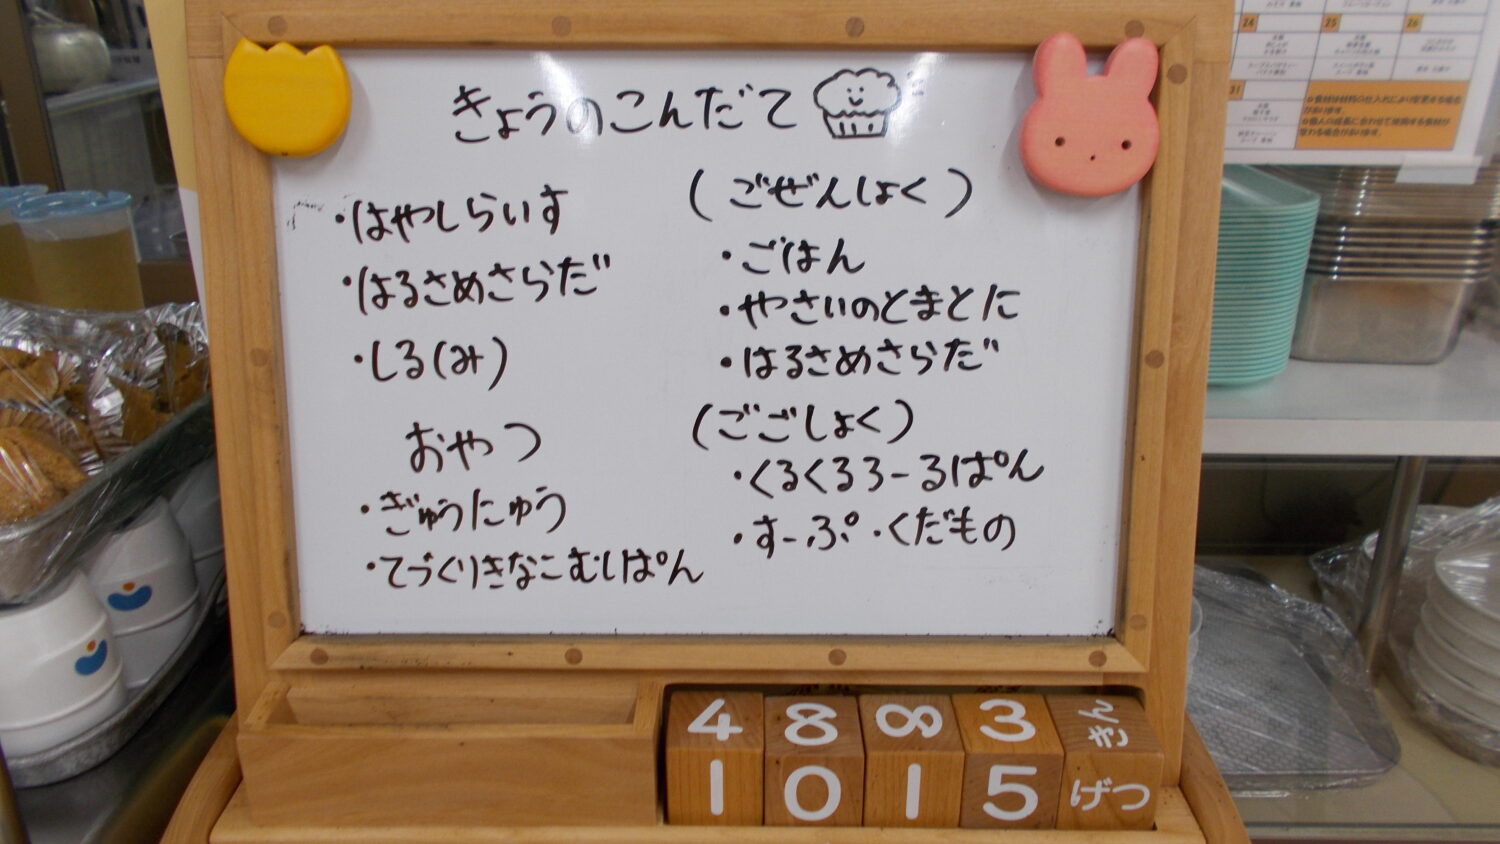 きょうのこんだて
・はやしらいす
・はるさめさらだ
・しる(み)
おやつ
・ぎゅうにゅう
・てづくりきなこむしぱん
(ごぜんしょく)
・ごはん
・やさいのとまとに
・はるさめさらだ
(ごごしょく)
・くるくるろーるぱん
・すーぷ・くだもの
4 8 8 3 きん
1 0 1 5 げつ
24 25 26
31